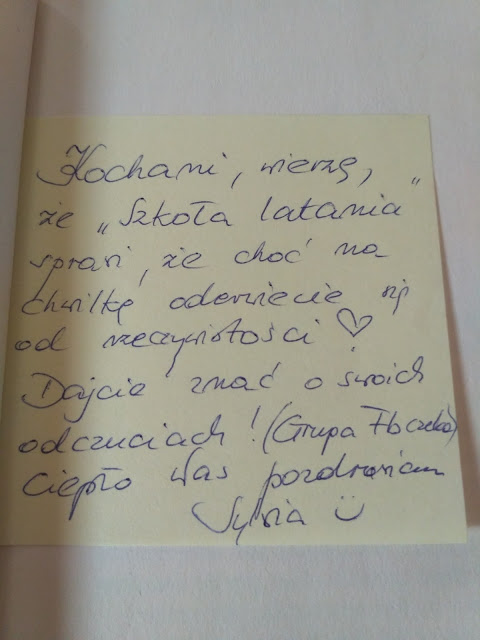 Kochami, wierzę,
że „Szkoła latania”
sprawi, że choć na
chwilkę oderwiecie się
od rzeczywistości ♡
Dajcie znać o swoich
odczuciach! (Grupa Fb czeka)
Ciepło Was pozdrawiam
Sylwia ☺